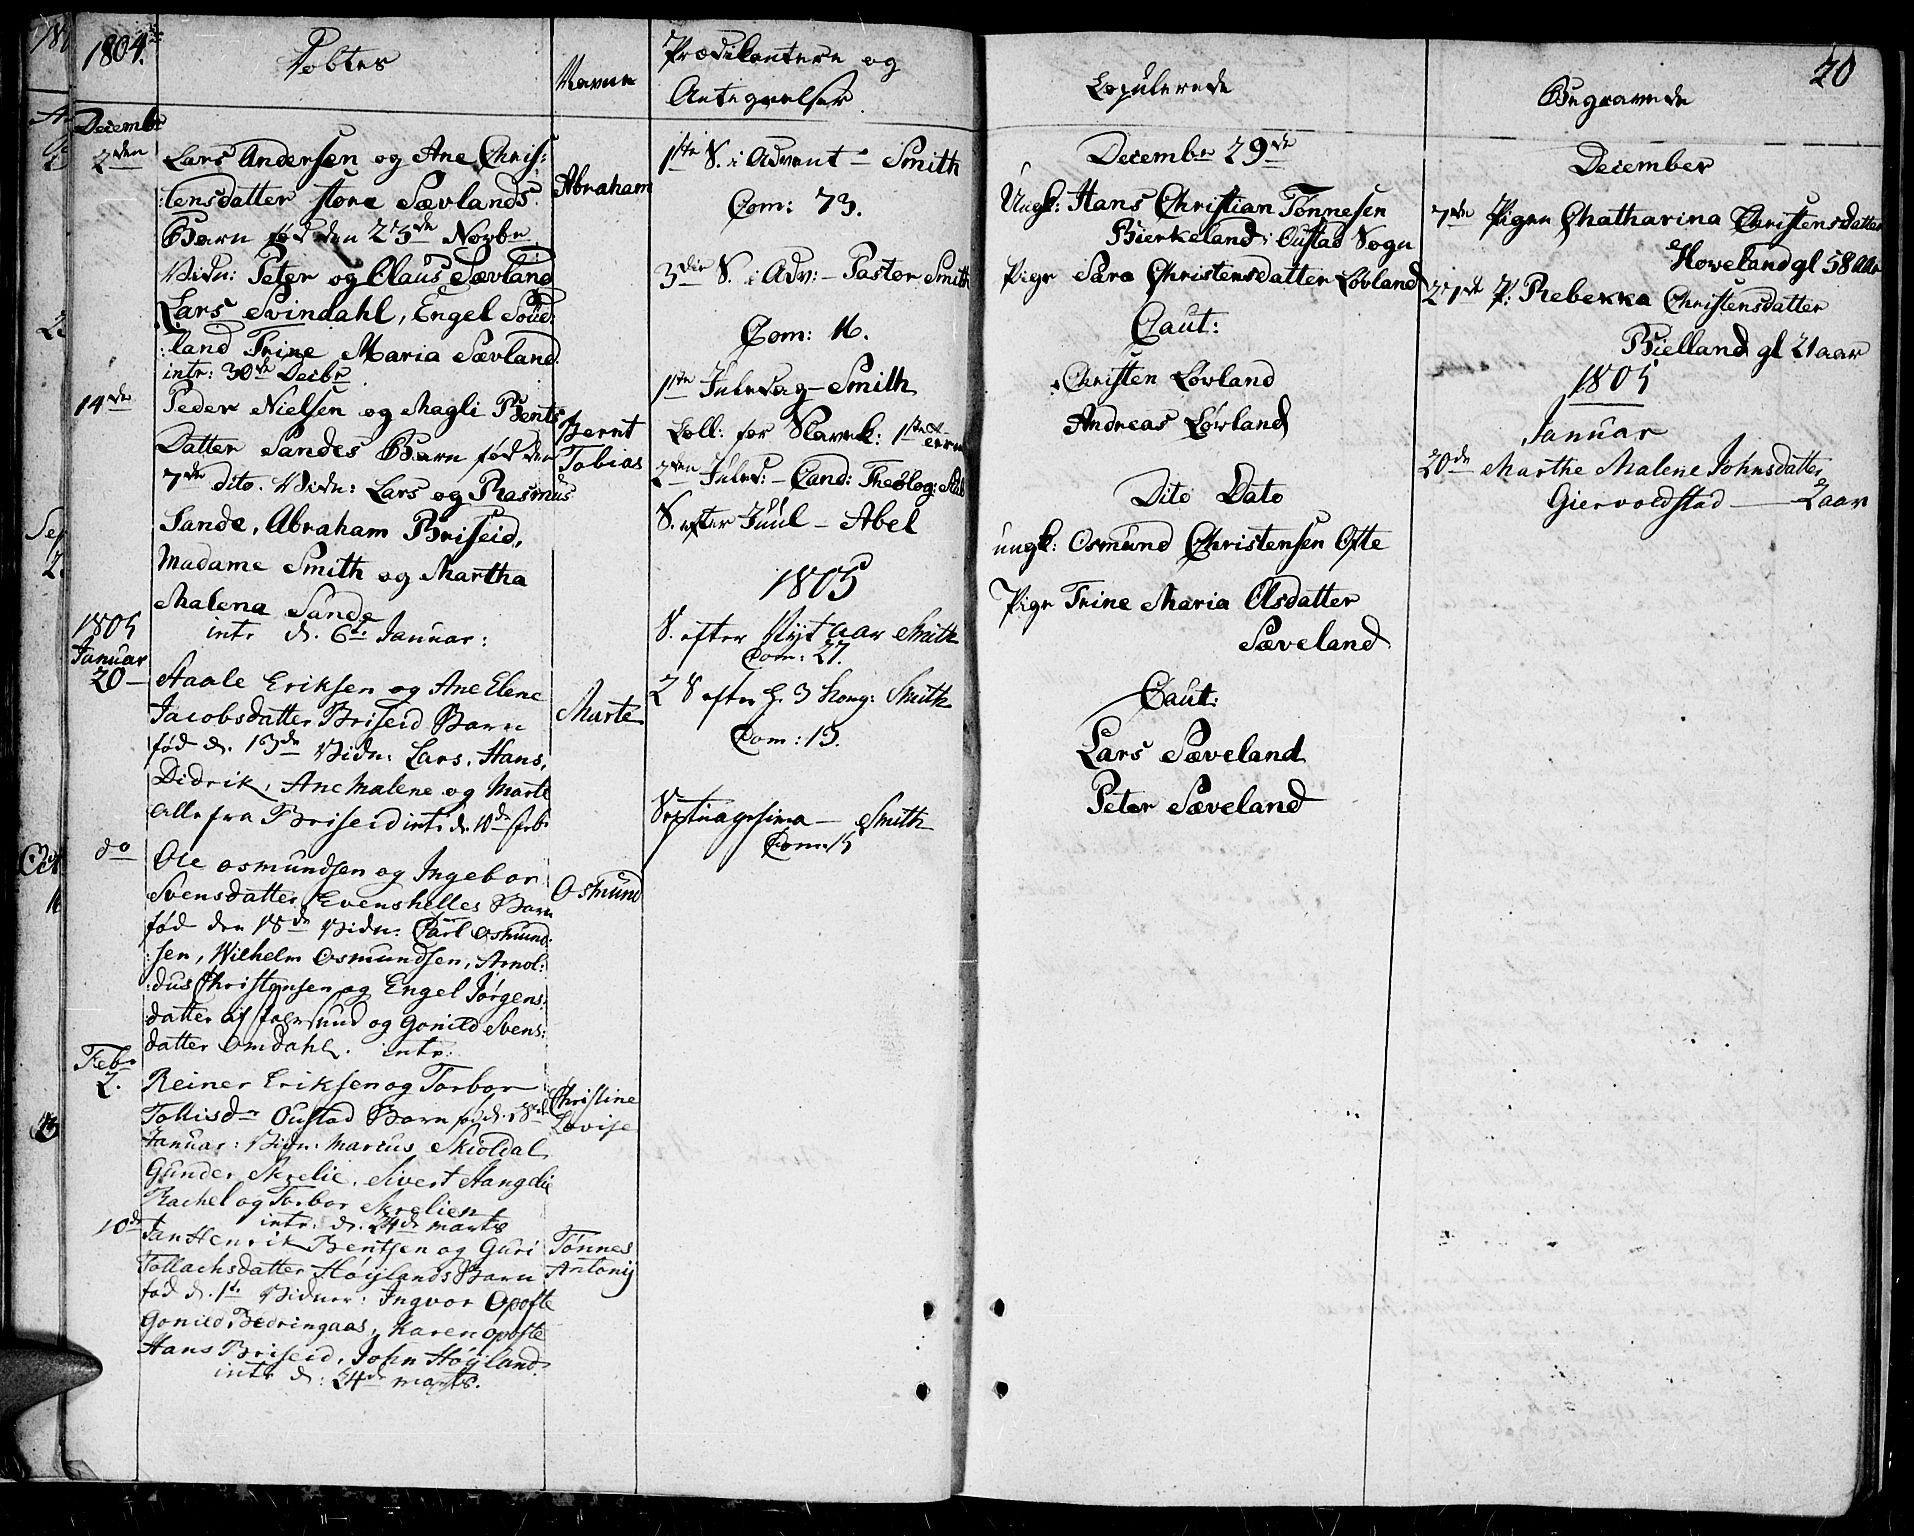 1804.
Døbtes
Navne
Prædikantere og
Antegnelser
Decembr
2den
Lars Andersen og Ane Chris:
:tensdatter store Sævlands
Barn fød den 25de Novbr
Vidn: Peter og Claus Sævland
Lars Svindahl, Engel Søud:
:land Trine Maria Sævland.
intr: 30de Decbr
Abraham
14de
Peder Nielsen og Magli Bents
Datter Sandes Barn fød den
7de dito. Vidn: Lars og Rasmus
Sande, Abraham Briseid,
Madame Smith og Martha
Malena Sande
intr d. 6te Januar:
Bernt
Tobias
1805
Januar
20
Staale Eriksen og Ane Elene
Jacobsdatter Briseid Barn
fød d. 13de Vidn: Lars, Hans,
Didrik, Ane Malene og Marte
alle fra Briseid intr. d. 10de febr
Marte
do
Ole Osmundsen og Ingebor
Svensdatter Evenshelles Barn
fød den 18de Vidn: Carl Osmund:
:sen, Wilhelm Osmundsen, Arnol:
:dus Christensen og Engel Jørgens:
datter af farsund og Gonild Svens:
datter Omdahl. intr:
Osmund
Febr
2.
Reiner Eriksen og Torbor
Tollisdr Oustad Barn fød d. 28de
Januar: Vidn: Marcus Skioldal
Gunder Skrelie, Sivert Hangelie
Rachel og Torbor Skrelien
intr: d. 24de marts
Christine
Lovise
10de
Jan Henrik Bentsen og Guri
Tollachsdatter Høylands Barn
fød d. 1te Vidner: Ingvor Opofte
Gonild Bedringaas, Karen Opofte
Hans Briseid, John Høyland.
intr d: 24de marts.
Tønnes
Antonij
1ste S. i Advent - Smith
Com: 73.
3die S. i Adv: - Pastor Smith
Com: 16.
1ste Juledag - Smith
Coll: for Slavek: 1ste
2den Juled: - Cand: Theolog:
S. efter Juul - Abel
1805
S. efter Nyt aar Smith
Com: 27.
2 S efter H. 3 Kong: Smith
Com: 13.
Septuagesima - Smith
Com: 15
Copulerede
Decembr 29de
Ungk: Hans Christian Tønnesen
Birkeland i Oustad Sogn
Pige Sara Christensdatter Løvland
Caut:
Christen Løvland
Andreas Løvland
Dito Dato
ungk: Osmund Christensen Ofte
Pige Trine Maria Olsdatter
Sæveland
Caut:
Lars Sæveland
Peter Sæveland
20
Begravede
December
7de Pigen Chatharina Christensdatter
Hoveland gl 58 aar
27de P: Rebekka Christensdatter
Bielland gl 21 aar
1805
Januar
20de Marthe Malene Johnsdatter
Giervoldstad — 2 aar